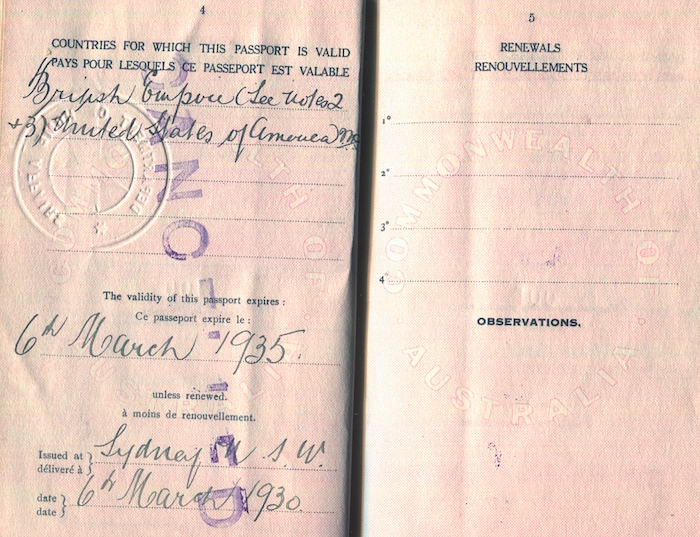 4
COUNTRIES FOR WHICH THIS PASSPORT IS VALID
PAYS POUR LESQUELS CE PASSEPORT EST VALABLE
British Empire (See notes 2
+ 3) United States of America
CANCELLED
The validity of this passport expires :
Ce passeport expire le :
6th March 1935.
unless renewed.
à moins de renouvellement.
Issued at } Sydney N. S. W.
délivré à }
date } 6th March 1930
date }
5
RENEWALS
RENOUVELLEMENTS
1°
2°
3°
4°
COMMONWEALTH OF
AUSTRALIA
OBSERVATIONS.